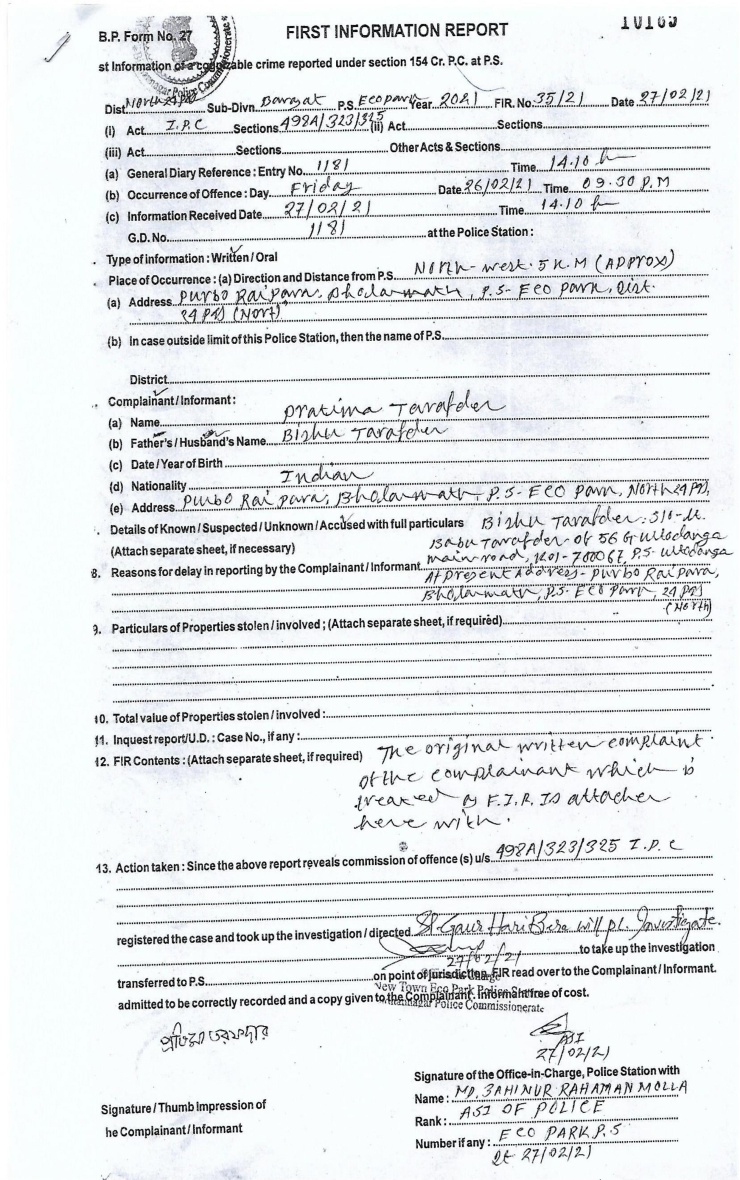 10165
B.P. Form No. 27
FIRST INFORMATION REPORT
st Information of a cognizable crime reported under section 154 Cr. P.C. at P.S.
Dist. North 24 PS Sub-Divn. Barasat P.S. Eco park Year 2021 FIR. No. 35/21 Date 27/02/21
(i) Act I.P.C Sections 498A/323/325 (ii) Act Sections
(iii) Act Sections Other Acts & Sections
(a) General Diary Reference : Entry No. 1181 Time 14.10 h
(b) Occurrence of Offence : Day Friday Date 26/02/21 Time 09.30 P.M
(c) Information Received Date 27/02/21 Time 14.10 h
G.D. No. 1181 at the Police Station :
Type of information : Written / Oral
Place of Occurrence : (a) Direction and Distance from P.S. North-west. 5 K.M (APPROX)
(a) Address Purbo Rai para, Bholarmath, P.S- Eco park, Dist.
24 PS (Nort)
(b) In case outside limit of this Police Station, then the name of P.S.
District
Complainant / Informant :
(a) Name Pratima Tarafder
(b) Father's / Husband's Name Bishu Tarafder
(c) Date / Year of Birth
(d) Nationality Indian
(e) Address Purbo Rai para, Bholarmath, P.S- Eco Park, North 24 PS,
Details of Known / Suspected / Unknown / Accused with full particulars Bishu Tarafder. S/o-Lt.
(Attach separate sheet, if necessary) Babu Tarafder of 56 G Ultodanga
main road, Kol-700067, P.S- Ultodanga
8. Reasons for delay in reporting by the Complainant / Informant At present Address- Purbo Rai para,
Bholarmath, P.S- Eco Park, 24 PS
(North)
9. Particulars of Properties stolen / involved ; (Attach separate sheet, if required)
10. Total value of Properties stolen / involved :
11. Inquest report/U.D. : Case No., if any :
12. FIR Contents : (Attach separate sheet, if required) The original written complaint
of the complainant which is
treated as F.I.R. is attached
here with.
13. Action taken : Since the above report reveals commission of offence (s) u/s. 498A/323/325 I.P.C
registered the case and took up the investigation / directed SI Gaur Hari Bera will pl. Investigate.
27/02/21 to take up the investigation
transferred to P.S. on point of jurisdiction. FIR read over to the Complainant / Informant.
New Town Eco Park Police Station
admitted to be correctly recorded and a copy given to the Complainant. Informant free of cost.
Police Commissionerate
প্রতিমা তরফদার
ASI
27/02/21
Signature of the Office-in-Charge, Police Station with
Name : MD. JAHINUR RAHAMAN MOLLA
Signature / Thumb Impression of
Rank : ASI OF POLICE
he Complainant / Informant
Number if any : ECO PARK P.S
Dt 27/02/21